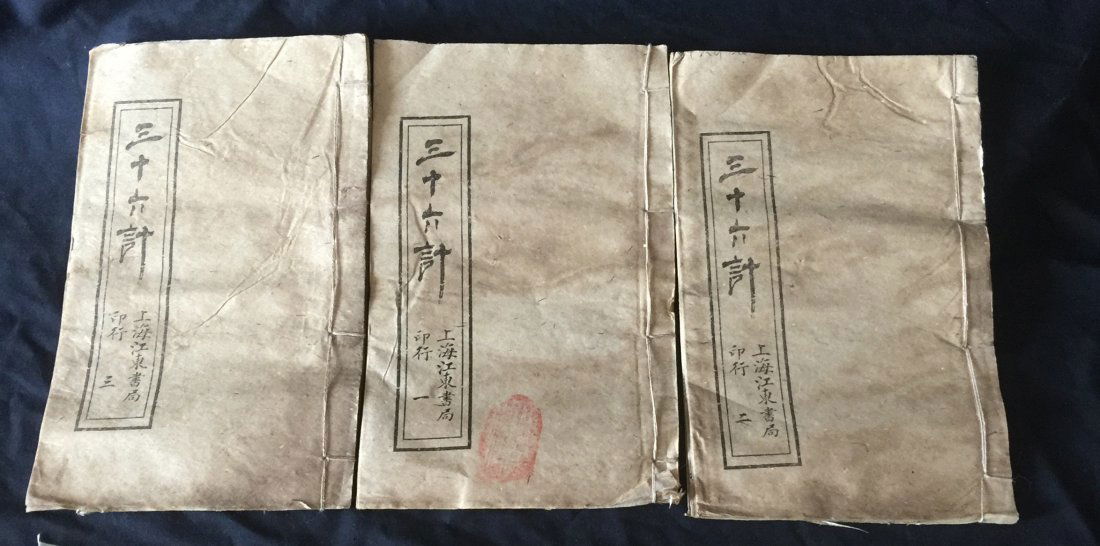 三十六計
上海江東書局
印行 三
三十六計
上海江東書局
印行 一
三十六計
上海江東書局
印行 二